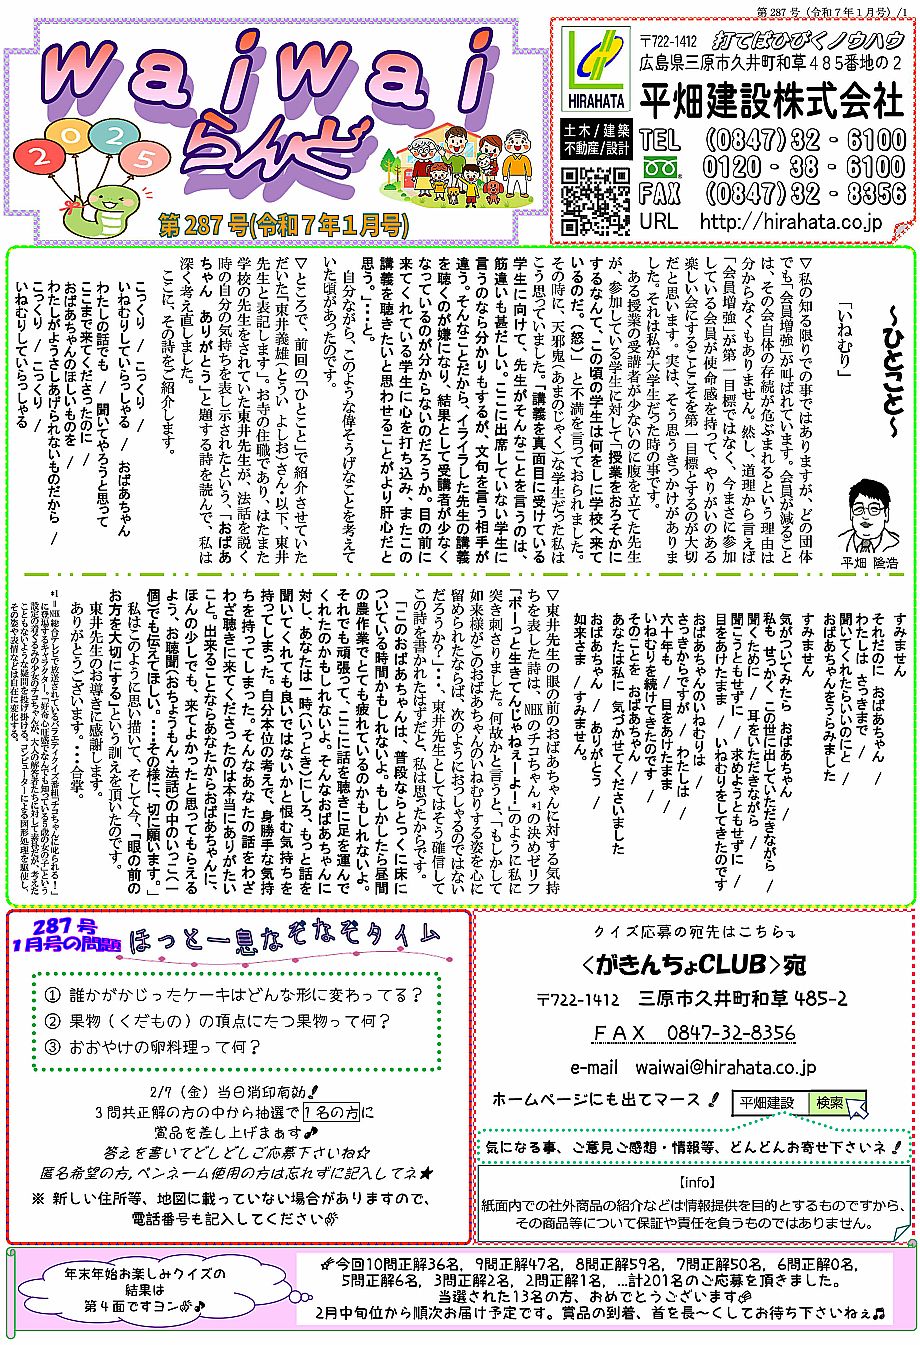 第287号（令和7年1月号）/1
waiwai
らんど
2025
第287号(令和7年1月号)
HIRAHATA
土木/建築
不動産/設計
〒722-1412　打てばひびくノウハウ
広島県三原市久井町和草485番地の2
平畑建設株式会社
TEL　(0847)32-6100
0120-38-6100
FAX　(0847)32-8356
URL　http://hirahata.co.jp
～ひとこと～
平畑　隆浩
「いねむり」
▽私の知る限りでの事ではありますが、どの団体
でも「会員増強」が叫ばれています。会員が減ること
は、その会自体の存続が危ぶまれるという理由は
分からなくもありません。然し、道理から言えば
「会員増強」が第一目標ではなく、今まさに参加
している会員が使命感を持って、やりがいのある
楽しい会にすることこそを第一目標とするのが大切
だと思います。実は、そう思うきっかけがありま
した。それは私が大学生だった時の事です。
ある授業の受講者が少ないのに腹を立てた先生
が、参加している学生に対して「授業をおろそかに
するなんて、この頃の学生は何をしに学校へ来て
いるのだ。（怒）」と不満を言っておられました。
その時に、天邪鬼(あまのじゃく)な学生だった私は
こう思っていました。「講義を真面目に受けている
学生に向けて、先生がそんなことを言うのは、
筋違いも甚だしい。ここに出席していない学生に
言うのなら分かりもするが、文句を言う相手が
違う。そんなことだから、イライラした先生の講義
を聴くのが嫌になり、結果として受講者が少なく
なっているのが分からないのだろうか。目の前に
来てくれている学生に心を打ち込み、またこの
講義を聴きたいと思わせることがより肝心だと
思う。」・・・と。
自分ながら、このような偉そうげなことを考えて
いた頃があったのです。
▽ところで、前回の「ひとこと」で紹介させていた
だいた「東井義雄(とうい よしお)さん・以下、東井
先生と表記します」。お寺の住職であり、はたまた
学校の先生をされていた東井先生が、法話を説く
時の自分の気持ちを表し示されたという、「おばあ
ちゃん ありがとう」と題する詩を読んで、私は
深く考え直しました。
ここに、その詩をご紹介します。
こっくり / こっくり /
いねむりしていらっしゃる / おばあちゃん
わたしの話でも / 聞いてやろうと思って
ここまで来てくださったのに /
おばあちゃんのほしいものを /
わたしがようさしあげられないものだから /
こっくり / こっくり /
いねむりしていらっしゃる
すみません /
すみません
それだのに おばあちゃん /
わたしは さっきまで /
聞いてくれたらいいのにと /
おばあちゃんをうらみました
気がついてみたら おばあちゃん /
私も せっかく この世に出していただきながら /
聞くために / 耳をいただきながら /
聞こうともせずに / 求めようともせずに /
目をあけたまま / いねむりをしてきたのです
おばあちゃんのいねむりは /
さっきからですが / わたしは /
六十年も / 目をあけたまま /
いねむりを続けてきたのです
そのことを おばあちゃん /
あなたは私に 気づかせてくださいました
おばあちゃん / ありがとう /
如来さま / すみません。
▽東井先生の眼の前のおばあちゃんに対する気持
ちを表した詩は、NHKのチコちゃん*1の決めゼリフ
「ボーっと生きてんじゃねぇーよ！」のように私に
突き刺さりました。何故かと言うと、「もしかして
如来様がこのおばあちゃんのいねむりする姿を心に
留められたならば、次のようにおっしゃるのではない
だろうか？」・・・、東井先生としてはそう確信して
この詩を書かれたはずだと、私は思ったからです。
「このおばあちゃんは、普段ならとっくに床に
ついている時間かもしれないよ。もしかしたら昼間
の農作業でとても疲れているのかもしれないよ。
それでも頑張って、ここに話を聴きに足を運んで
くれたのかもしれないよ。そんなおばあちゃんに
対し、あなたは一時(いっとき)にしろ、もっと話を
聞いてくれても良いではないかと恨む気持ちを
持ってしまった。自分本位の考えで、身勝手な気持
ちを持ってしまった。そんなあなたの話をわざ
わざ聴きに来てくださったのは本当にありがたい
こと。出来ることならあなたからおばあちゃんに、
ほんの少しでも、来てよかったと思ってもらえる
よう、お聴聞(おちょうもん・法話)の中のいっこ(一
個)でも伝えてほしい。・・・その様に、切に願います。」
私はこのように思い描いて、そして今、「眼の前の
お方を大切にする」という訓えを頂いたのです。
東井先生のお導きに感謝します。
ありがとうございます。・・・合掌。
287号
1月号の問題
ほっと一息なぞなぞタイム
① 誰かがかじったケーキはどんな形に変わってる？
② 果物（くだもの）の頂点にたつ果物って何？
③ おおやけの卵料理って何？
2/7（金）当日消印有効！
3問共正解の方の中から抽選で1名の方に
賞品を差し上げまぁす♪
答えを書いてどしどしご応募下さいね☆
匿名希望の方,ペンネーム使用の方は忘れずに記入してネ★
※ 新しい住所等、地図に載っていない場合がありますので、
電話番号も記入してください
クイズ応募の宛先はこちら
＜がきんちょCLUB＞宛
〒722-1412　三原市久井町和草485-2
ＦＡＸ　0847-32-8356
e-mail　waiwai@hirahata.co.jp
ホームページにも出てマース！ 平畑建設 検索
気になる事、ご意見ご感想・情報等、どんどんお寄せ下さいネ！
【info】
紙面内での社外商品の紹介などは情報提供を目的とするものですから、
その商品等について保証や責任を負うものではありません。
年末年始お楽しみクイズの
結果は
第4面ですヨン♪
今回10問正解36名, 9問正解47名, 8問正解59名, 7問正解50名, 6問正解0名,
5問正解6名, 3問正解2名, 2問正解1名, …計201名のご応募を頂きました。
当選された13名の方、おめでとうございます
2月中旬位から順次お届け予定です。賞品の到着、首を長～くしてお待ち下さいねぇ♫